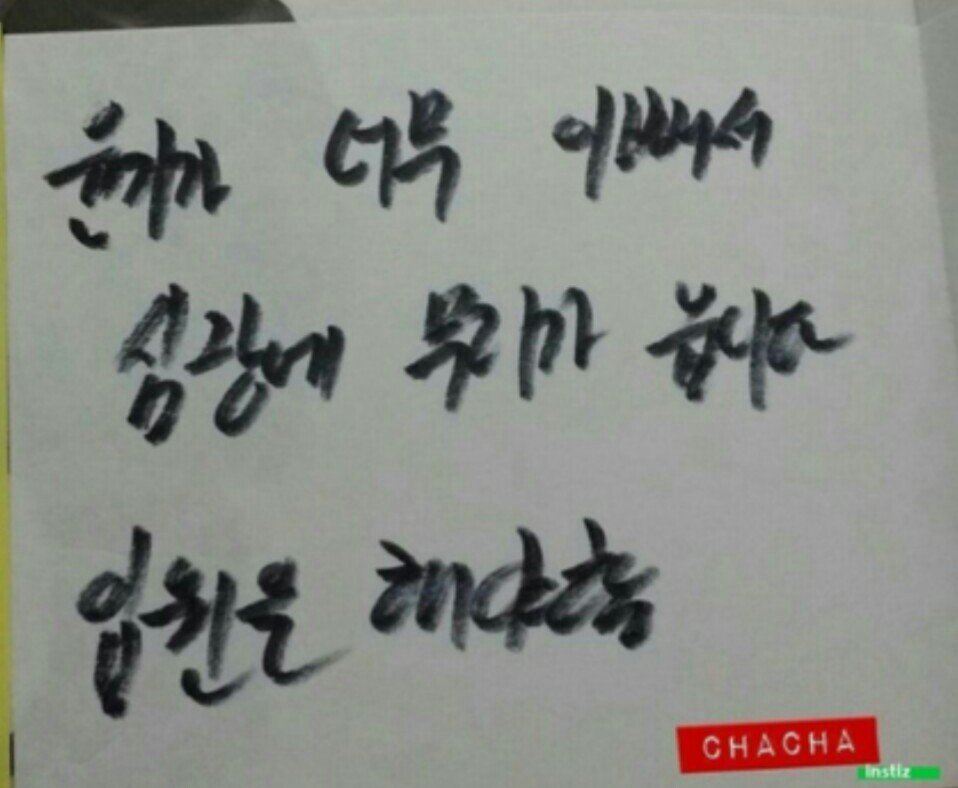 윤기가 너무 이뻐서
심장에 무리가 옵니다
입원을 해야함
CHACHA
instiz